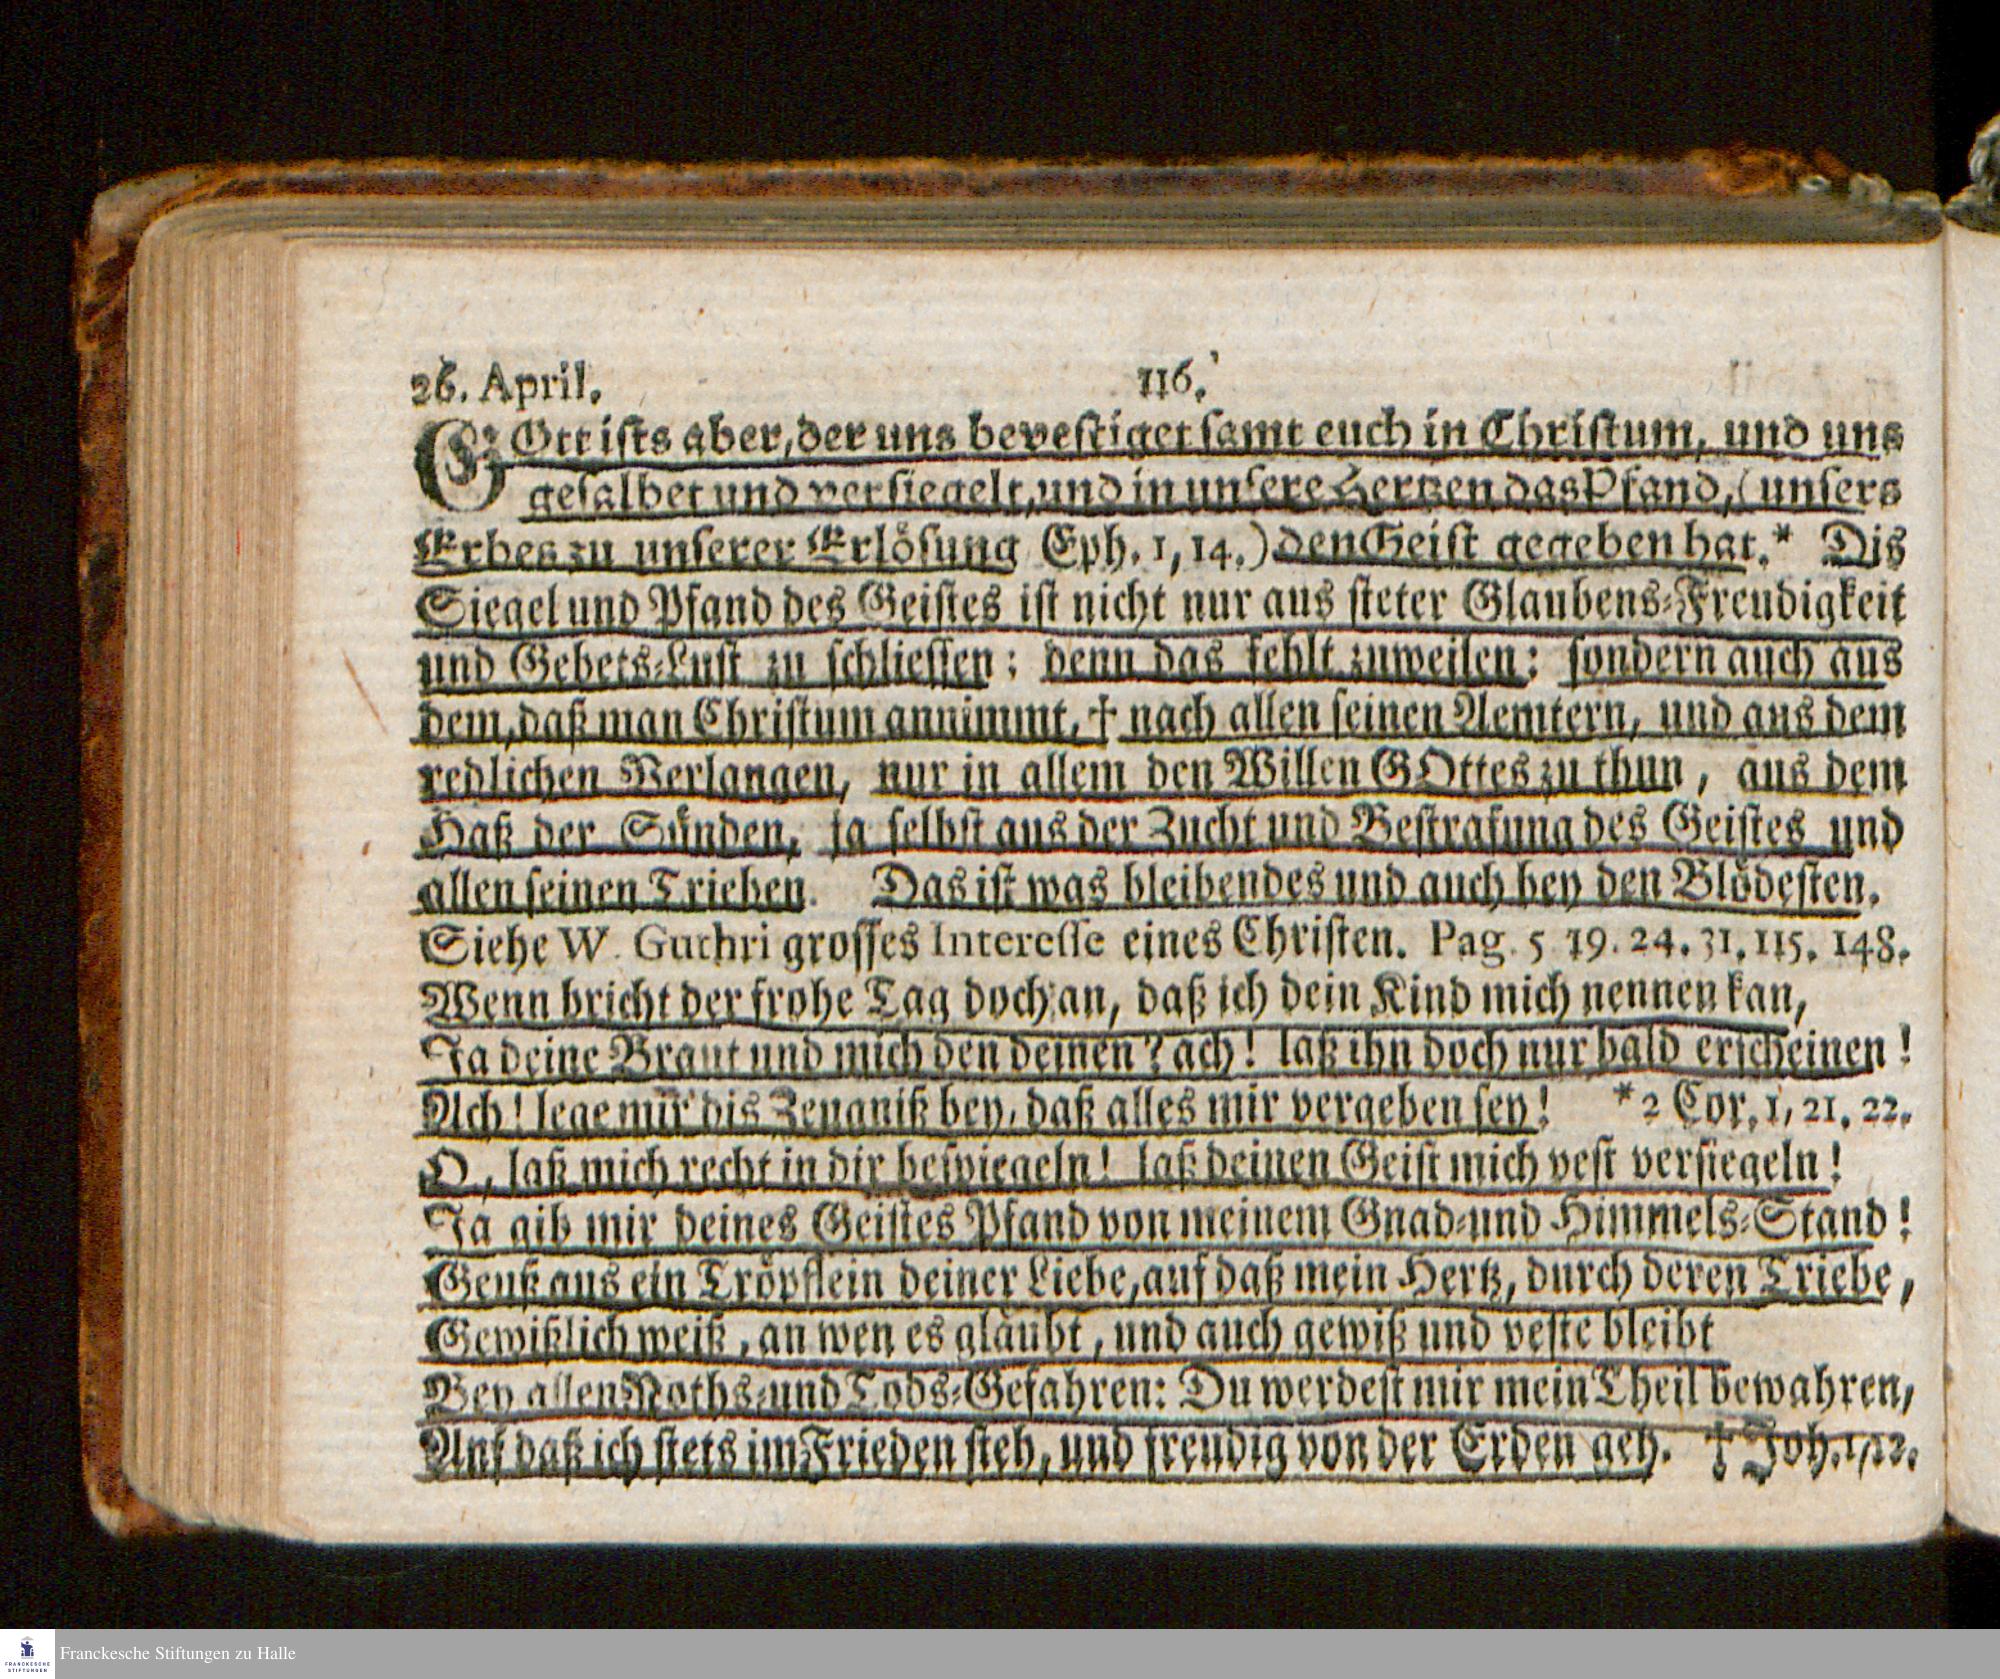 26. April. 116.
GOtt ists aber, der uns bevestiget samt euch in Christum, und uns
gesalbet und versiegelt, und in unsere Hertzen das Pfand, (unsers
Erbes zu unserer Erlösung Eph. 1, 14.) den Geist gegeben hat.* Dis
Siegel und Pfand des Geistes ist nicht nur aus steter Glaubens-Freudigkeit
und Gebets-Lust zu schliessen; denn das fehlt zuweilen: sondern auch aus
dem, daß man Christum annimmt, † nach allen seinen Aemtern, und aus dem
redlichen Verlangen, nur in allem den Willen GOttes zu thun, aus dem
Haß der Sünden, ja selbst aus der Zucht und Bestrafung des Geistes und
allen seinen Trieben. Das ist was bleibendes und auch bey den Blödesten.
Siehe W. Guthri grosses Interesse eines Christen. Pag. 5 19. 24. 31. 115. 148.
Wenn bricht der frohe Tag doch an, daß ich dein Kind mich nennen kan,
Ja deine Braut und mich den deinen? ach! laß ihn doch nur bald erscheinen!
Ach! lege mir dis Zeugniß bey, daß alles mir vergeben sey! * 2 Cor. 1, 21. 22.
O, laß mich recht in dir bespiegeln! laß deinen Geist mich vest versiegeln!
Ja gib mir deines Geistes Pfand von meinem Gnad- und Himmels-Stand!
Geuß aus ein Tröpflein deiner Liebe, auf daß mein Hertz, durch deren Triebe,
Gewißlich weiß, an wen es gläubt, und auch gewiß und veste bleibt
Bey allen Noths- und Tods-Gefahren: Du werdest mir mein Theil bewahren,
Auf daß ich stets im Frieden steh, und freudig von der Erden geh. † Joh. 1, 12.
FRANCKESCHE
STIFTUNGEN
Franckesche Stiftungen zu Halle